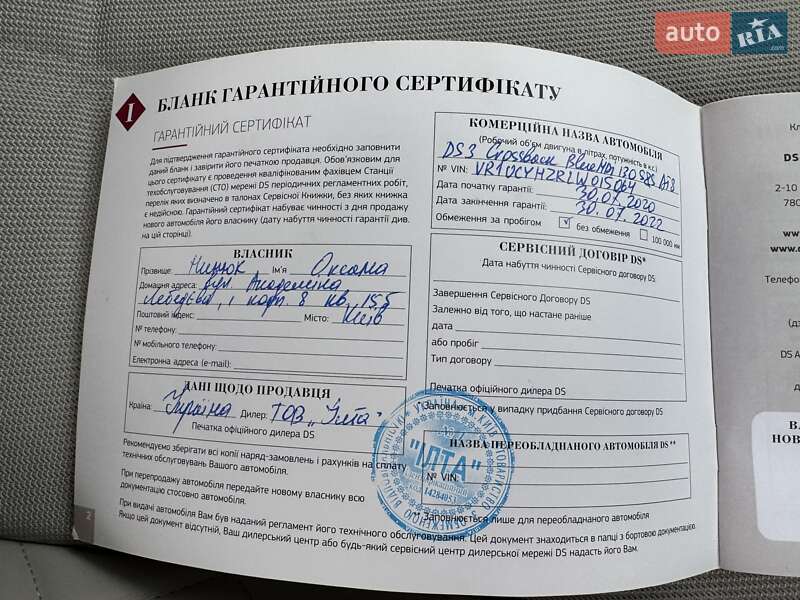 auto RIA.com
I
БЛАНК ГАРАНТІЙНОГО СЕРТИФІКАТУ
ГАРАНТІЙНИЙ СЕРТИФІКАТ
Для підтвердження гарантійного сертифіката необхідно заповнити
даний бланк і завірити його печаткою продавця. Обов'язковим для
цього сертифікату є проведення кваліфікованим фахівцем Станції
техобслуговування (СТО) мережі DS періодичних регламентних робіт,
перелік яких визначено в талонах Сервісної Книжки, без яких книжка
є недійсною. Гарантійний сертифікат набуває чинності з дня продажу
нового автомобіля його власнику (дату набуття чинності гарантії див.
на цій сторінці).
ВЛАСНИК
Прізвище: Ім'я Оксана
Домашня адреса: вул. Академіка
1 корп. 8 кв. 155
Поштовий індекс: Місто: Київ
№ телефону:
№ мобільного телефону:
Електронна адреса (e-mail):
ДАНІ ЩОДО ПРОДАВЦЯ
Країна: Україна Дилер: ТОВ "Ілта"
Печатка офіційного дилера DS
Рекомендуємо зберігати всі копії наряд-замовлень і рахунків на сплату
технічних обслуговувань Вашого автомобіля.
При перепродажу автомобіля передайте новому власнику всю
документацію стосовно автомобіля.
При видачі автомобіля Вам був наданий регламент його технічного обслуговування. Цей документ знаходиться в папці з бортовою документацією.
Якщо цей документ відсутній, Ваш дилерський центр або будь-який сервісний центр дилерської мережі DS надасть його Вам.
2
КОМЕРЦІЙНА НАЗВА АВТОМОБІЛЯ
(Робочий об'єм двигуна в літрах, потужність в к.с.)
DS3 Crossback BlueHDi 130 S&S
№ VIN: VR1UCYHZRLW015064
Дата початку гарантії: 30.07.2020
Дата закінчення гарантії: 30.07.2022
Обмеження за пробігом без обмеження 100 000 км
СЕРВІСНИЙ ДОГОВІР DS*
Дата набуття чинності Сервісного договору DS:
Завершення Сервісного Договору DS
Залежно від того, що настане раніше
дата
або пробіг
Тип договору
Печатка офіційного дилера DS
Заповнюється у випадку придбання Сервісного договору DS
НАЗВА ПЕРЕОБЛАДНАНОГО АВТОМОБІЛЯ DS **
№ VIN:
** Заповнюється лише для переобладнаного автомобіля
"ІЛТА"
14284051
2-10
DS A
НОВ